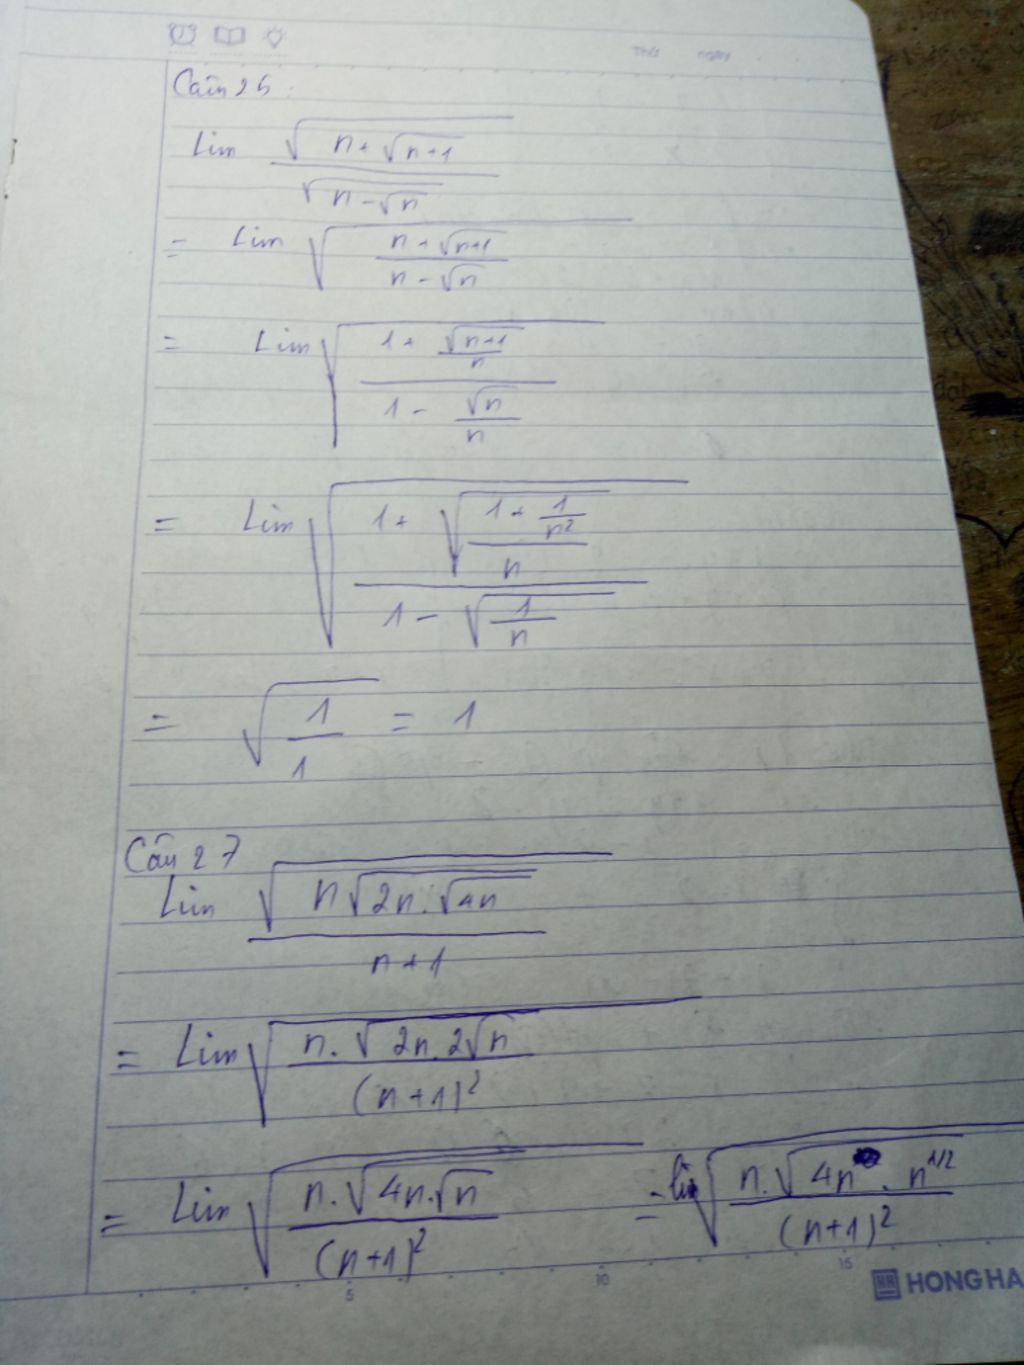 Thứ ngày
Câu 26
Lim √(n + √(n+1)) / √(n - √n)
= Lim √((n + √(n+1)) / (n - √n))
= Lim √((1 + √(n+1)/n) / (1 - √n/n))
= Lim √((1 + √((1 + 1/n²)/n)) / (1 - √(1/n)))
= √(1/1) = 1
Câu 27
Lim √(n√(2n.√(4n))) / (n+1)
= Lim √(n.√(2n.2√n) / (n+1)²)
= Lim √(n.√(4n.√n) / (n+1)²) = lim √(n.√(4n . n^1/2) / (n+1)²)
5 10 15
HONG HA